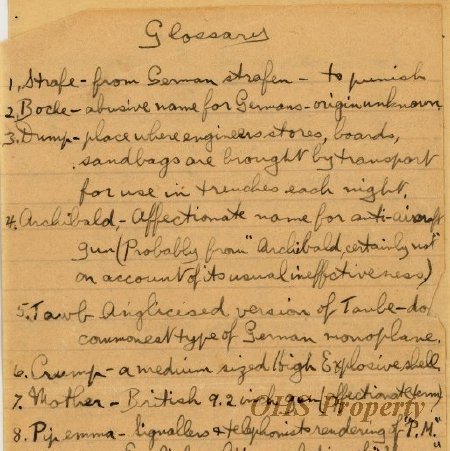 Glossary
1, Strafe - from German strafen - to punish
2, Boche - abusive name for Germans - origin unknown.
3. Dump - place where engineers stores, boards,
sandbags are brought by transport
for use in trenches each night.
4. Archibald, - Affectionate name for anti-aircraft
gun (Probably from "Archibald, certainly not"
on account of its usual ineffectiveness)
5. Tawb Anglicised version of Taube - do/
commonest type of German monoplane.
6. Crump - a medium sized High Explosive shell
7. Mother - British 9.2 inch gun (affectionate term)
OHS Property
8. Pip emma - signallers & telephonists rendering of "P.M."